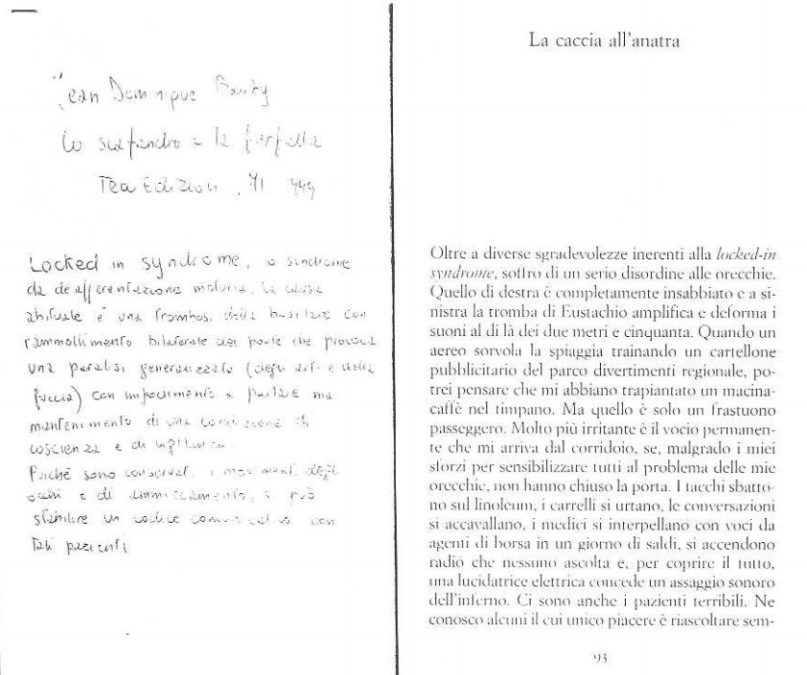 Jean Dominique Bauby
Lo scafandro e la farfalla
Tea Edizioni, MI
Locked in syndrome, o sindrome
da deafferentazione motoria. La causa
abituale è una trombosi della basilare con
rammollimento bilaterale del ponte che provoca
una paralisi generalizzata (degli arti e della
faccia) con impedimento a parlare ma
mantenimento di una condizione di
coscienza e di vigilanza.
Poiché sono conservati i movimenti degli
occhi e di ammiccamento, si può
stabilire un codice comunicativo con
tali pazienti
La caccia all'anatra
Oltre a diverse sgradevolezze inerenti alla locked-in
syndrome, soffro di un serio disordine alle orecchie.
Quello di destra è completamente insabbiato e a si-
nistra la tromba di Eustachio amplifica e deforma i
suoni al di là dei due metri e cinquanta. Quando un
aereo sorvola la spiaggia trainando un cartellone
pubblicitario del parco divertimenti regionale, po-
trei pensare che mi abbiano trapiantato un macina-
caffè nel timpano. Ma quello è solo un frastuono
passeggero. Molto più irritante è il vocio permanen-
te che mi arriva dal corridoio, se, malgrado i miei
sforzi per sensibilizzare tutti al problema delle mie
orecchie, non hanno chiuso la porta. I tacchi sbatto-
no sul linoleum, i carrelli si urtano, le conversazioni
si accavallano, i medici si interpellano con voci da
agenti di borsa in un giorno di saldi, si accendono
radio che nessuno ascolta e, per coprire il tutto,
una lucidatrice elettrica concede un assaggio sonoro
dell'inferno. Ci sono anche i pazienti terribili. Ne
conosco alcuni il cui unico piacere è riascoltare sem-
93